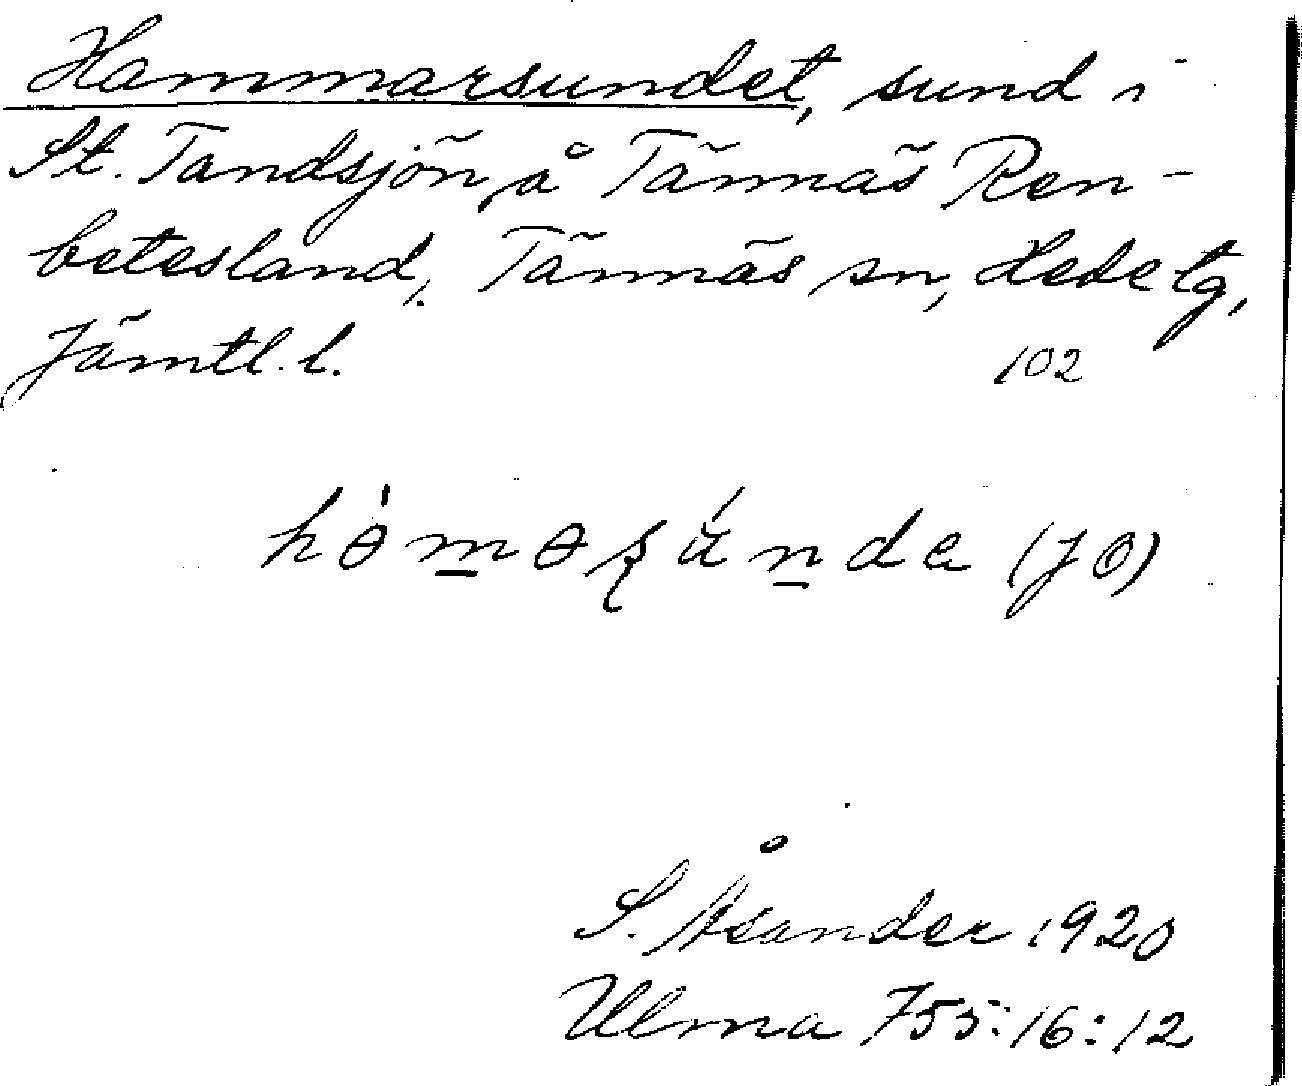 Hammarsundet, sund i
St. Tandsjön, å Tännäs Ren-
betesland, Tännäs sn, Hede tg,
Jämtl. l. 102
(JO)
S. Åsander 1920
Ulma 755:16:12